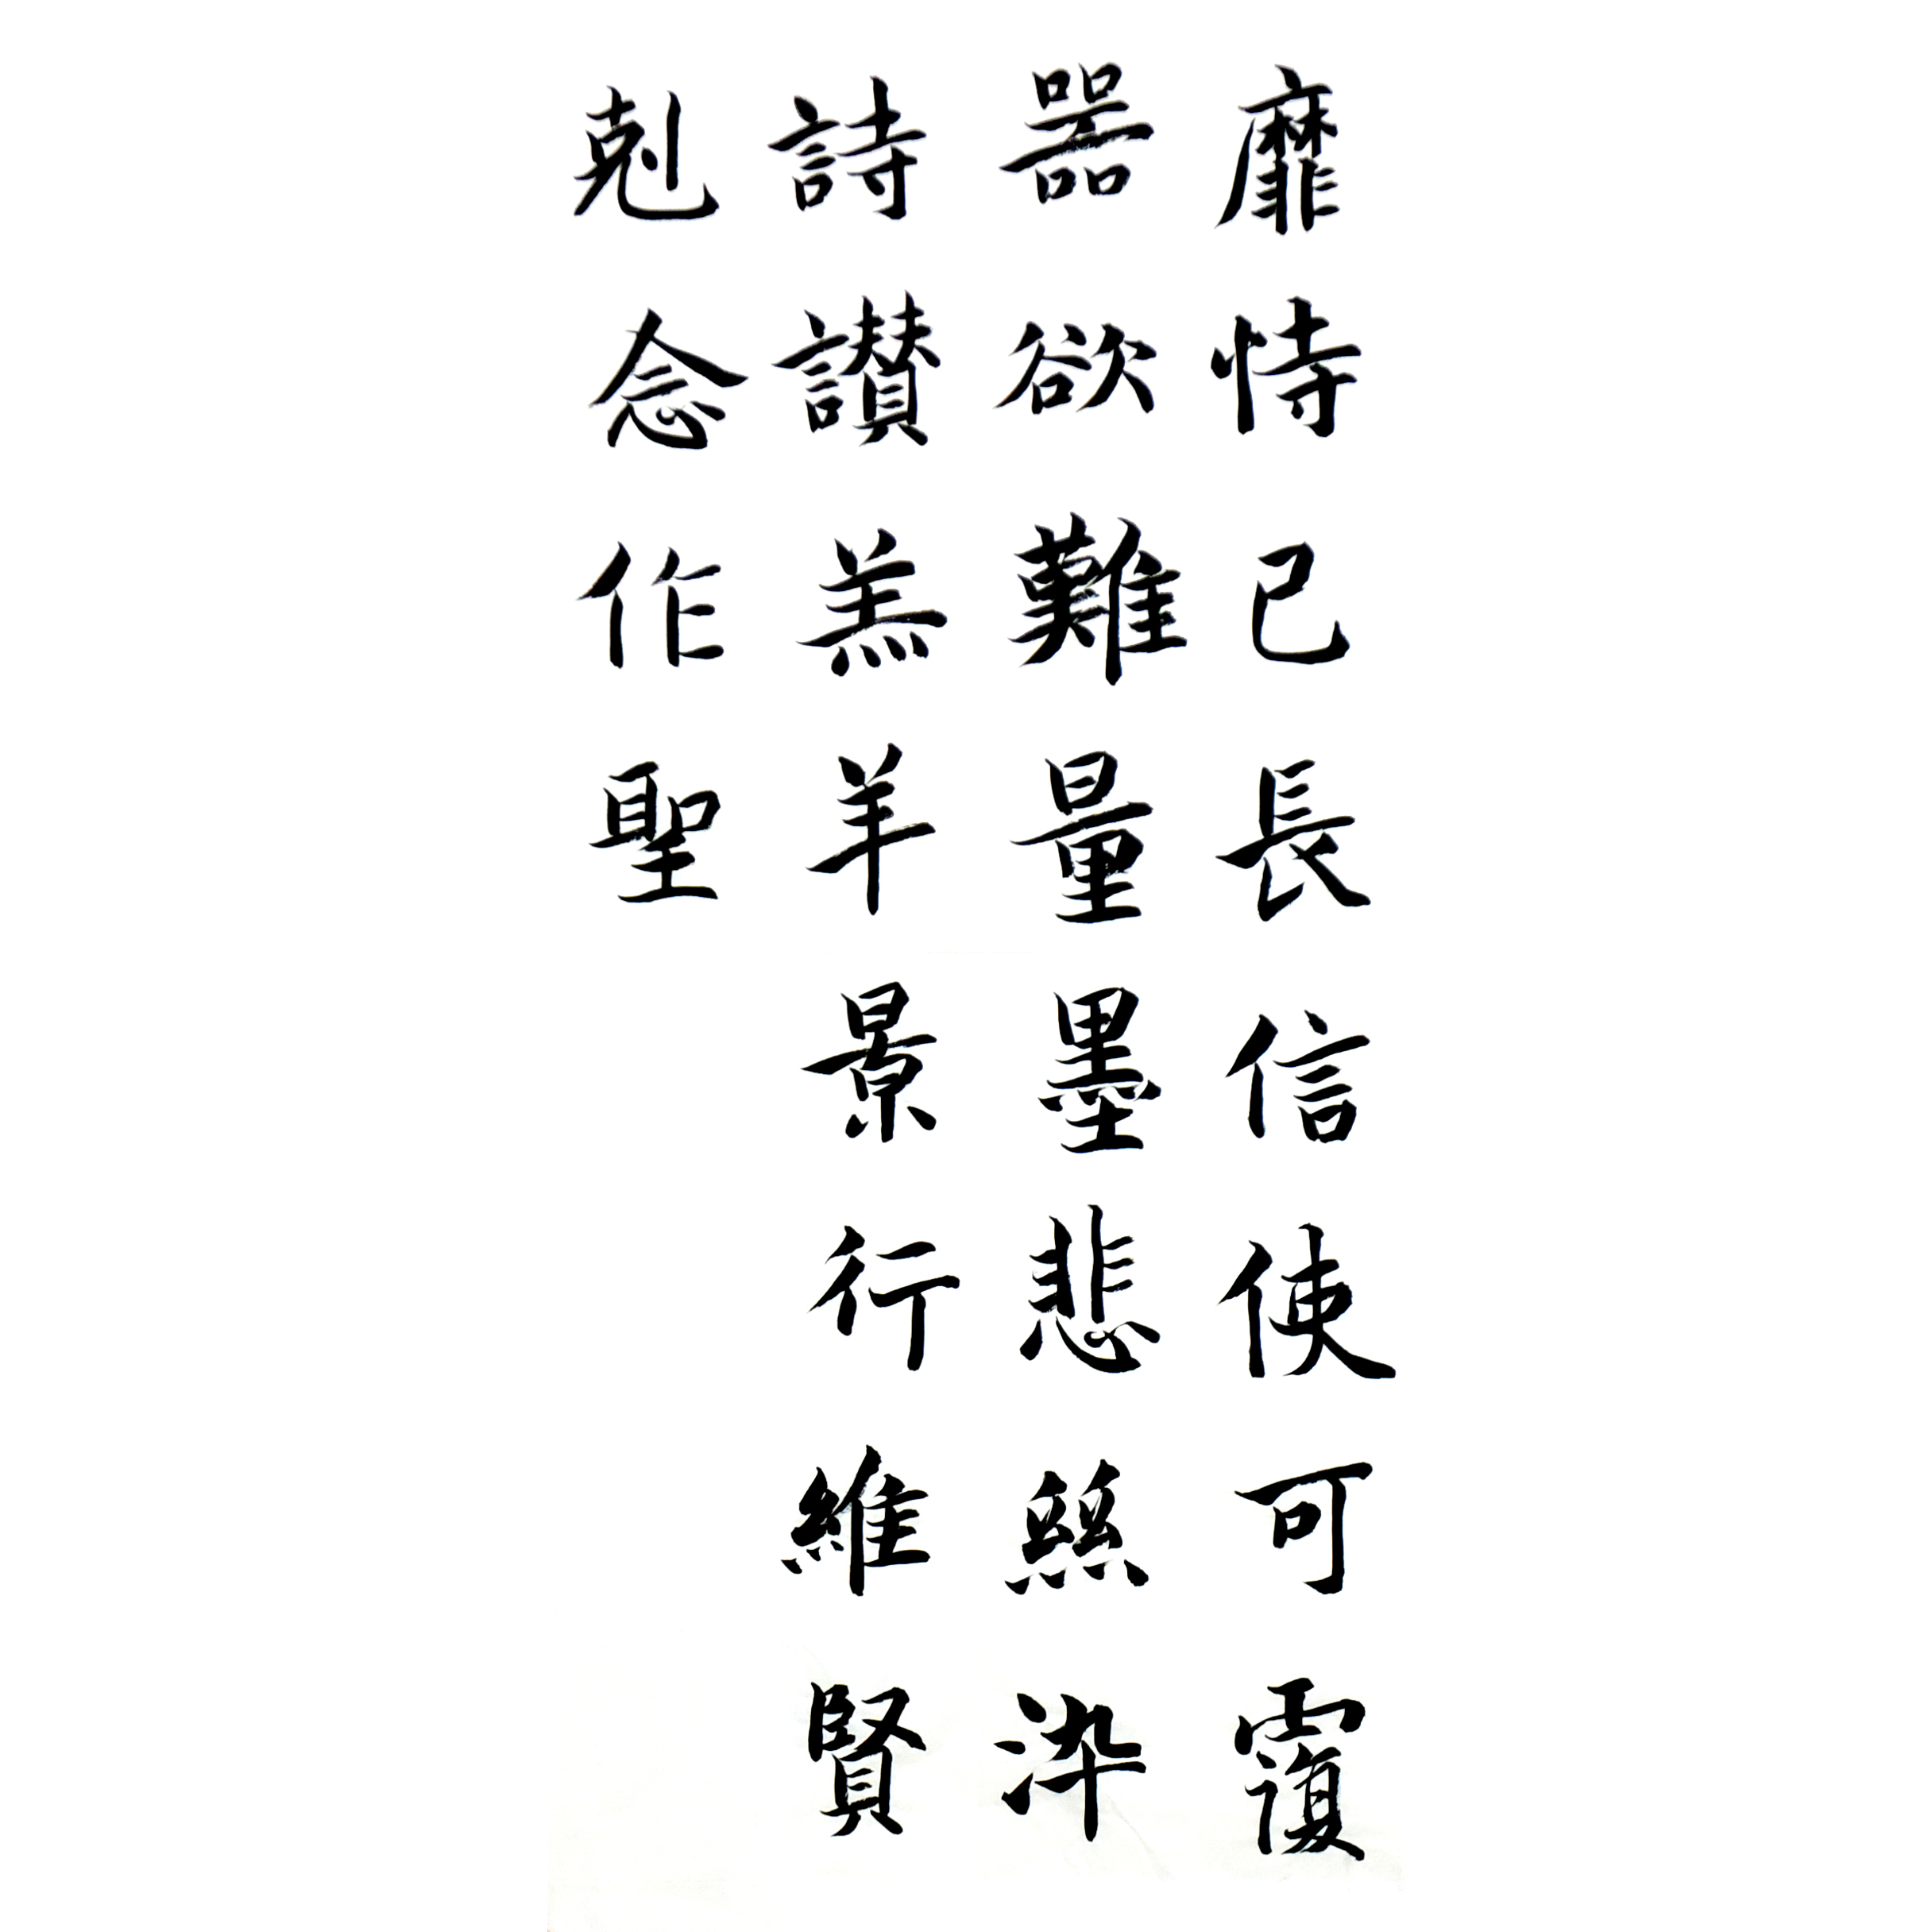 靡恃己長信使可覆
器欲難量墨悲絲染
詩讚羔羊景行維賢
剋念作聖